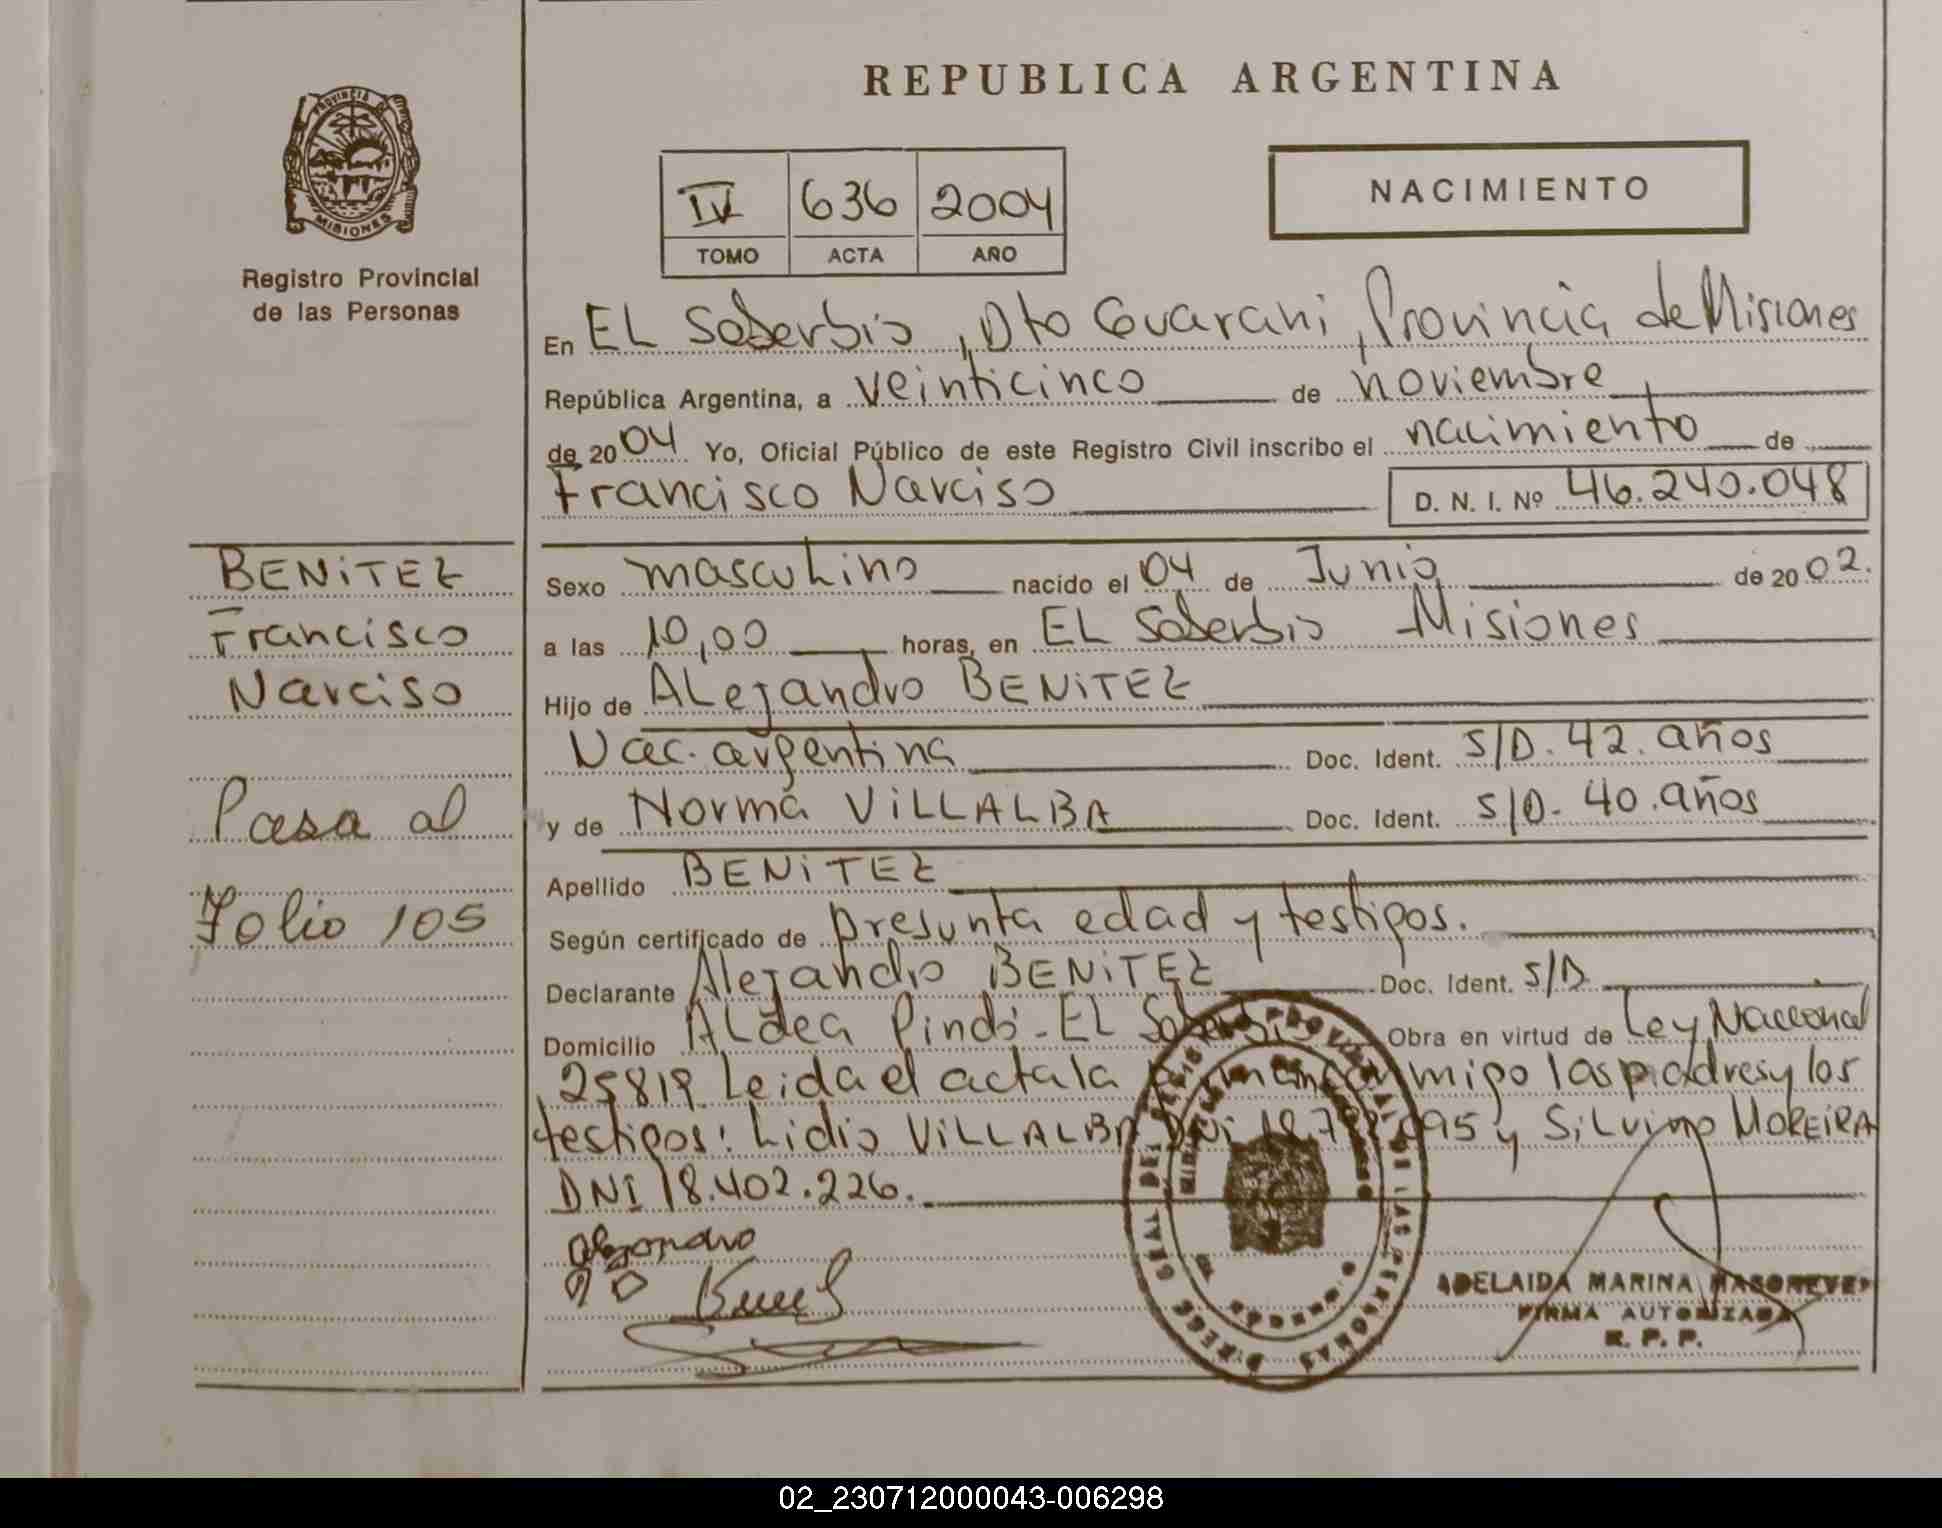 REPUBLICA ARGENTINA
PROVINCIA DE
MISIONES
Registro Provincial
de las Personas
IV 636 2004
TOMO ACTA AÑO
NACIMIENTO
En EL Soberbio, Dto Guarani, Provincia de Misiones
República Argentina, a veinticinco de noviembre
de 2004 Yo, Oficial Público de este Registro Civil inscribo el nacimiento de
Francisco Narciso D. N. I. Nº 46.240.048
BENITEZ
Francisco
Narciso
Pasa al
Folio 105
Sexo masculino nacido el 04 de Junio de 2002.
a las 10,00 horas, en EL Soberbio Misiones
Hijo de ALejandro BENITEZ
Nac. argentina Doc. Ident. S/D. 42. años
y de Norma VILLALBA Doc. Ident. S/D. 40. años
Apellido BENITEZ
Según certificado de presunta edad y testigos.
Declarante Alejandro BENITEZ Doc. Ident. S/D
Domicilio ALdea Pindó - EL Soberbio Obra en virtud de Ley Nacional
25819 Leida el acta la conmigo los padres y los
testigos: Lidio VILLALBA DNI y SiLvino MOREIRA
DNI 18.402.226.
alejandro
ADELAIDA MARINA
FIRMA AUTORIZADA
R. P. P.
02_230712000043-006298